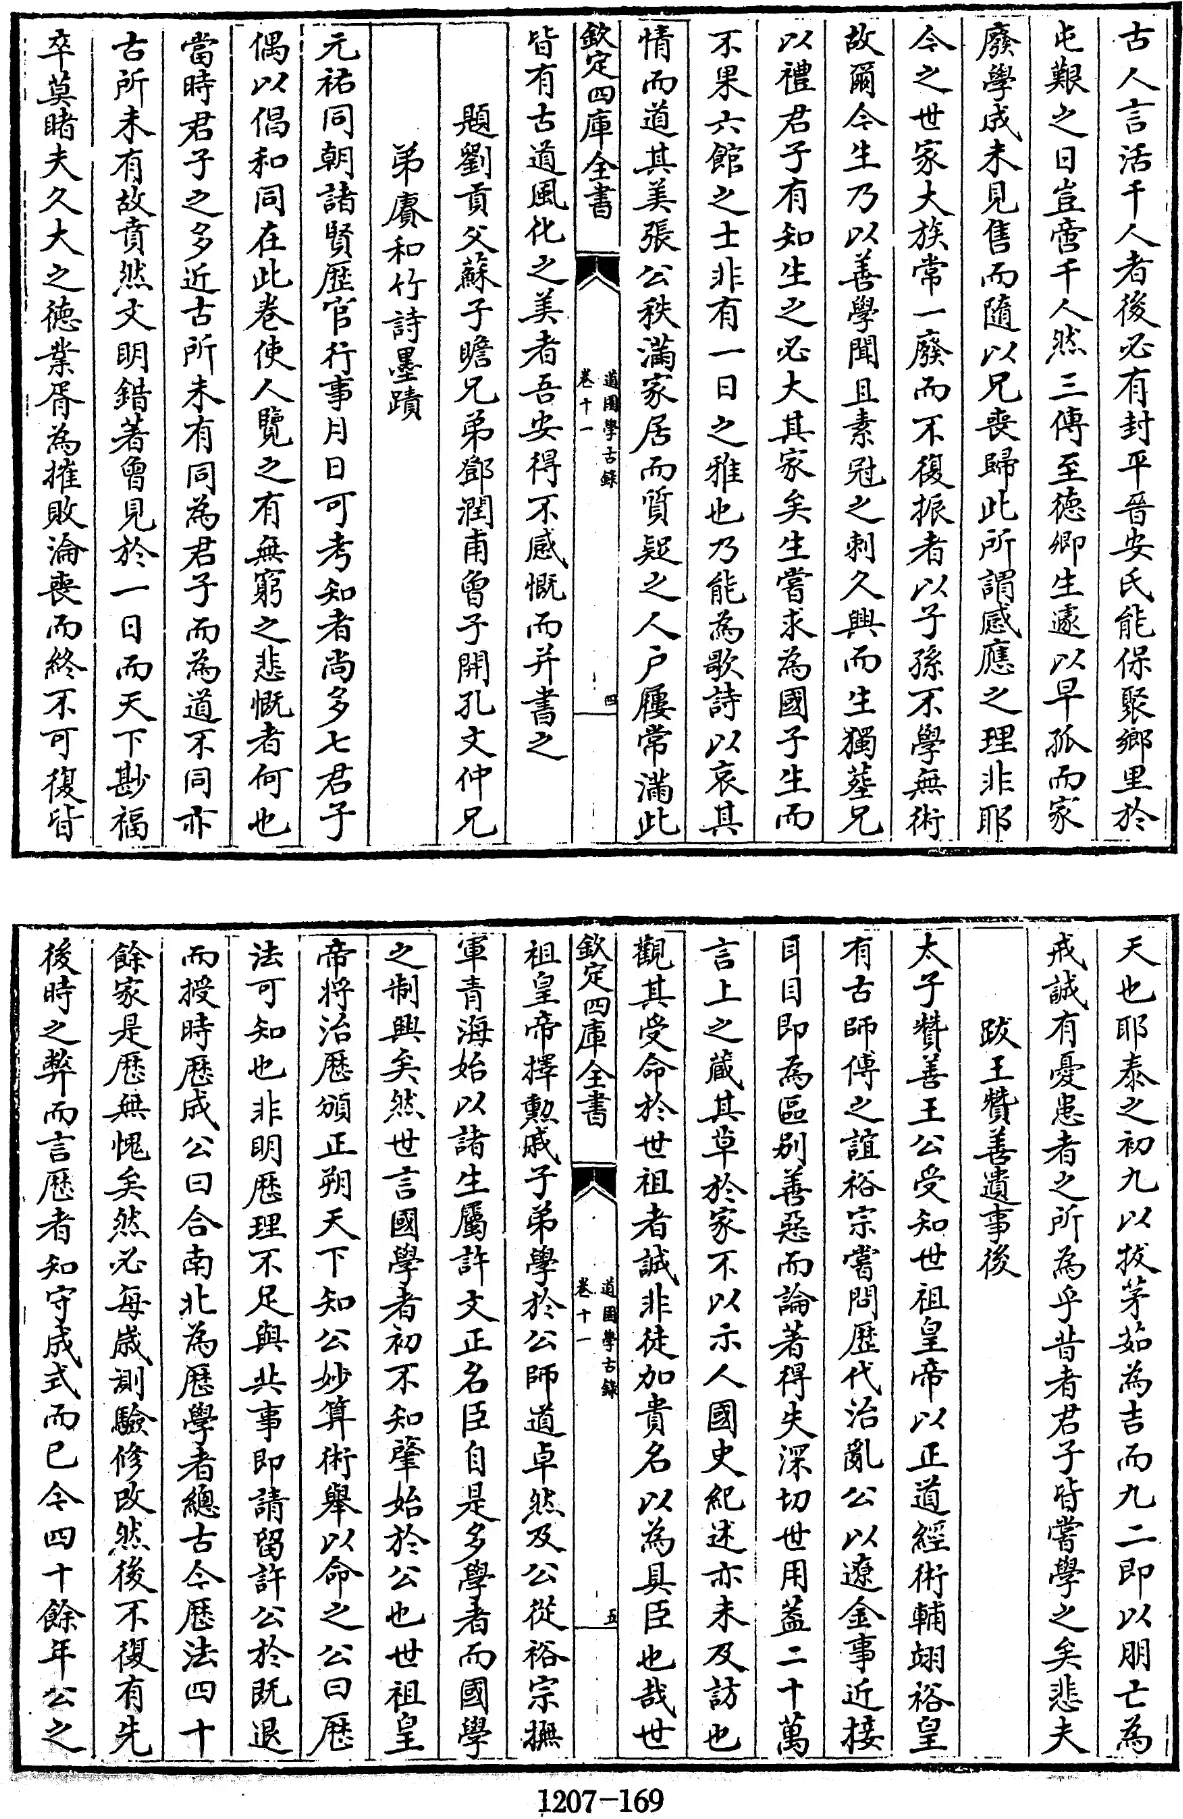 古人言活千人者後必有封平晉安氏能保聚鄉里於
屯艱之日豈啻千人然三傳至徳卿生遽以早孤而家
廢學成未見售而隨以兄喪歸此所謂感應之理非耶
今之世家大族常一廢而不復振者以子孫不學無術
故爾今生乃以善學聞且素冠之刺久興而生獨塟兄
以禮君子有知生之必大其家矣生嘗求為國子生而
不果六館之士非有一日之雅也乃能為歌詩以哀其
情而道其美張公秩滿家居而質疑之人户屨常滿此
欽定四庫全書
道園學古錄
卷十一
四
皆有古道風化之美者吾安得不感慨而并書之
題劉貢父蘇子瞻兄弟鄧潤甫曾子開孔文仲兄
弟賡和竹詩墨蹟
元祐同朝諸賢歴官行事月日可考知者尚多七君子
偶以倡和同在此卷使人覽之有無窮之悲慨者何也
當時君子之多近古所未有同為君子而為道不同亦
古所未有故賁然文明錯著曾見於一日而天下尠福
卒莫睹夫久大之徳業胥為摧敗淪喪而終不可復皆
天也耶泰之初九以拔茅茹為吉而九二即以朋亡為
戒誠有憂患者之所為乎昔者君子皆嘗學之矣悲夫
跋王贊善遺事後
太子贊善王公受知世祖皇帝以正道經術輔翊裕皇
有古師傅之誼裕宗嘗問歴代治亂公以遼金事近接
耳目即為區別善惡而論著得失深切世用葢二十萬
言上之藏其草於家不以示人國史紀述亦未及訪也
觀其受命於世祖者誠非徒加貴名以為具臣也哉世
欽定四庫全書
道園學古錄
卷十一
五
祖皇帝擇勲戚子弟學於公師道卓然及公從裕宗撫
軍青海始以諸生屬許文正名臣自是多學者而國學
之制興矣然世言國學者初不知肇始於公也世祖皇
帝將治厯頒正朔天下知公妙算術舉以命之公曰厯
法可知也非明厯理不足與共事即請留許公於既退
而授時厯成公曰合南北為厯學者總古今厯法四十
餘家是厯無愧矣然必每歳測驗修改然後不復有先
後時之弊而言厯者知守成式而已今四十餘年公之
1207-169